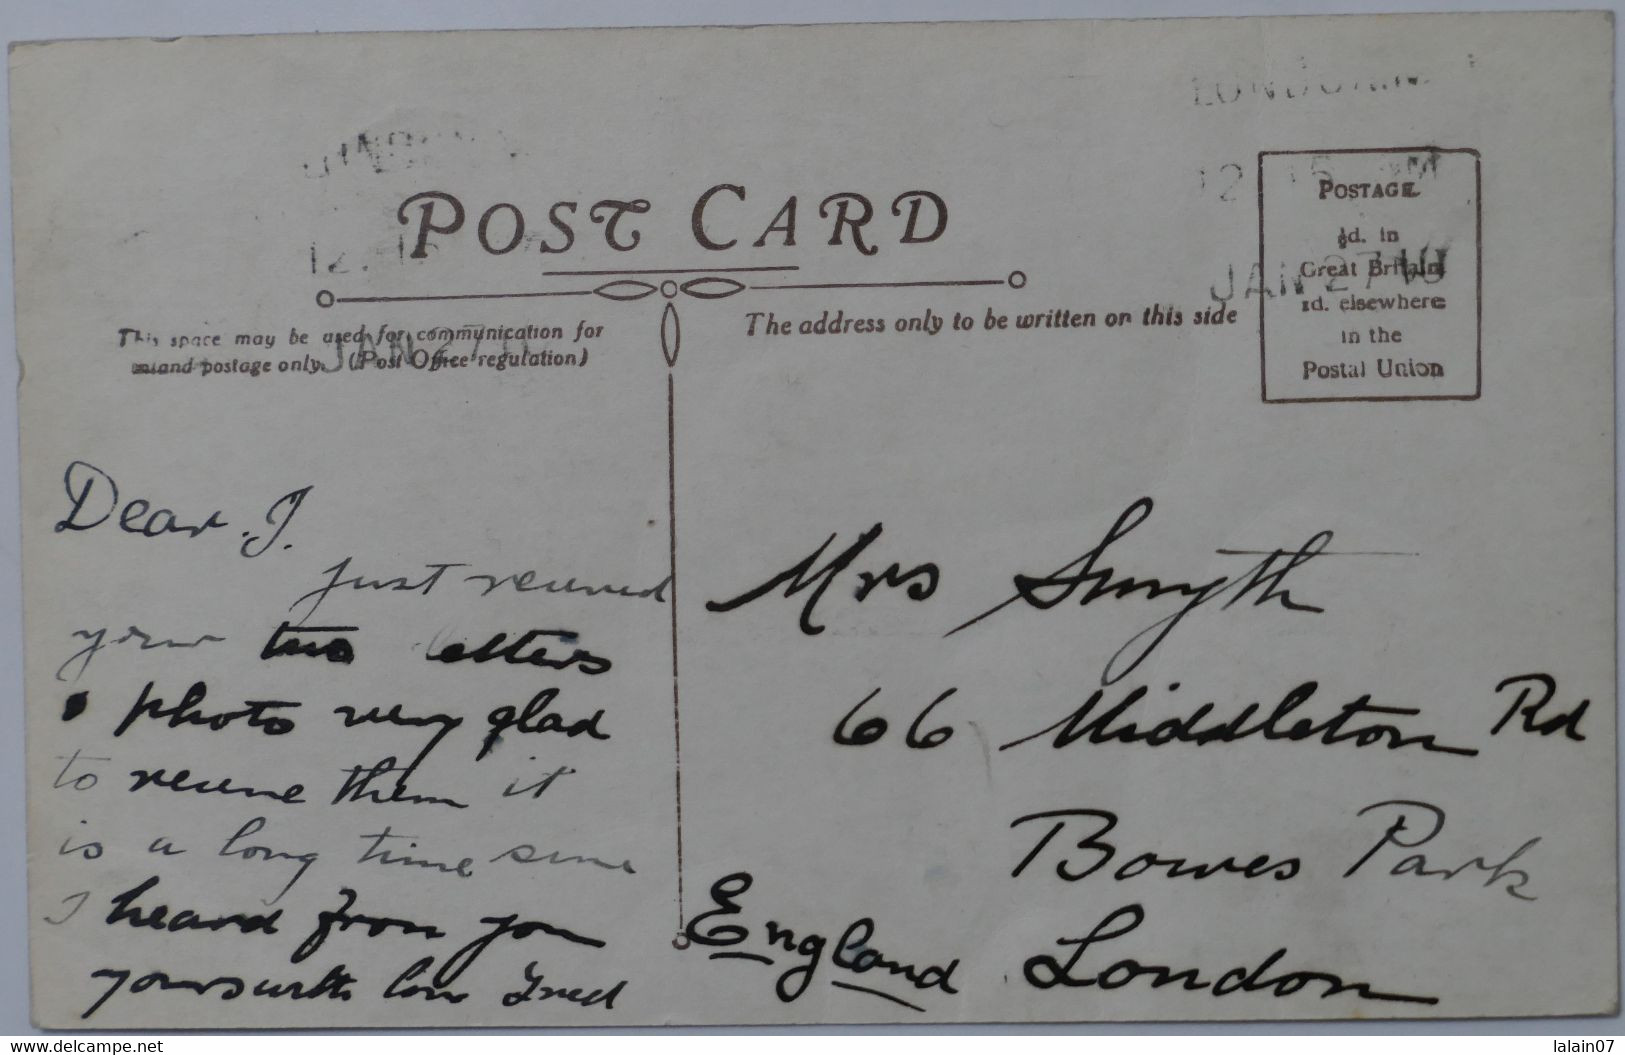 POST CARD
This space may be used for communication for
inland postage only. (Post Office regulation)
The address only to be written on this side
POSTAGE
½d. in
Great Britain
1d. elsewhere
in the
Postal Union
12 15 PM
JAN 27 10
JAN 27
Dear J.
just received
your two letters
& photo very glad
to receive them it
is a long time since
I heard from you
yours with love Fred
Mrs Smyth
66 Middleton Rd
Bowes Park
England London
www.delcampe.net
lalain07